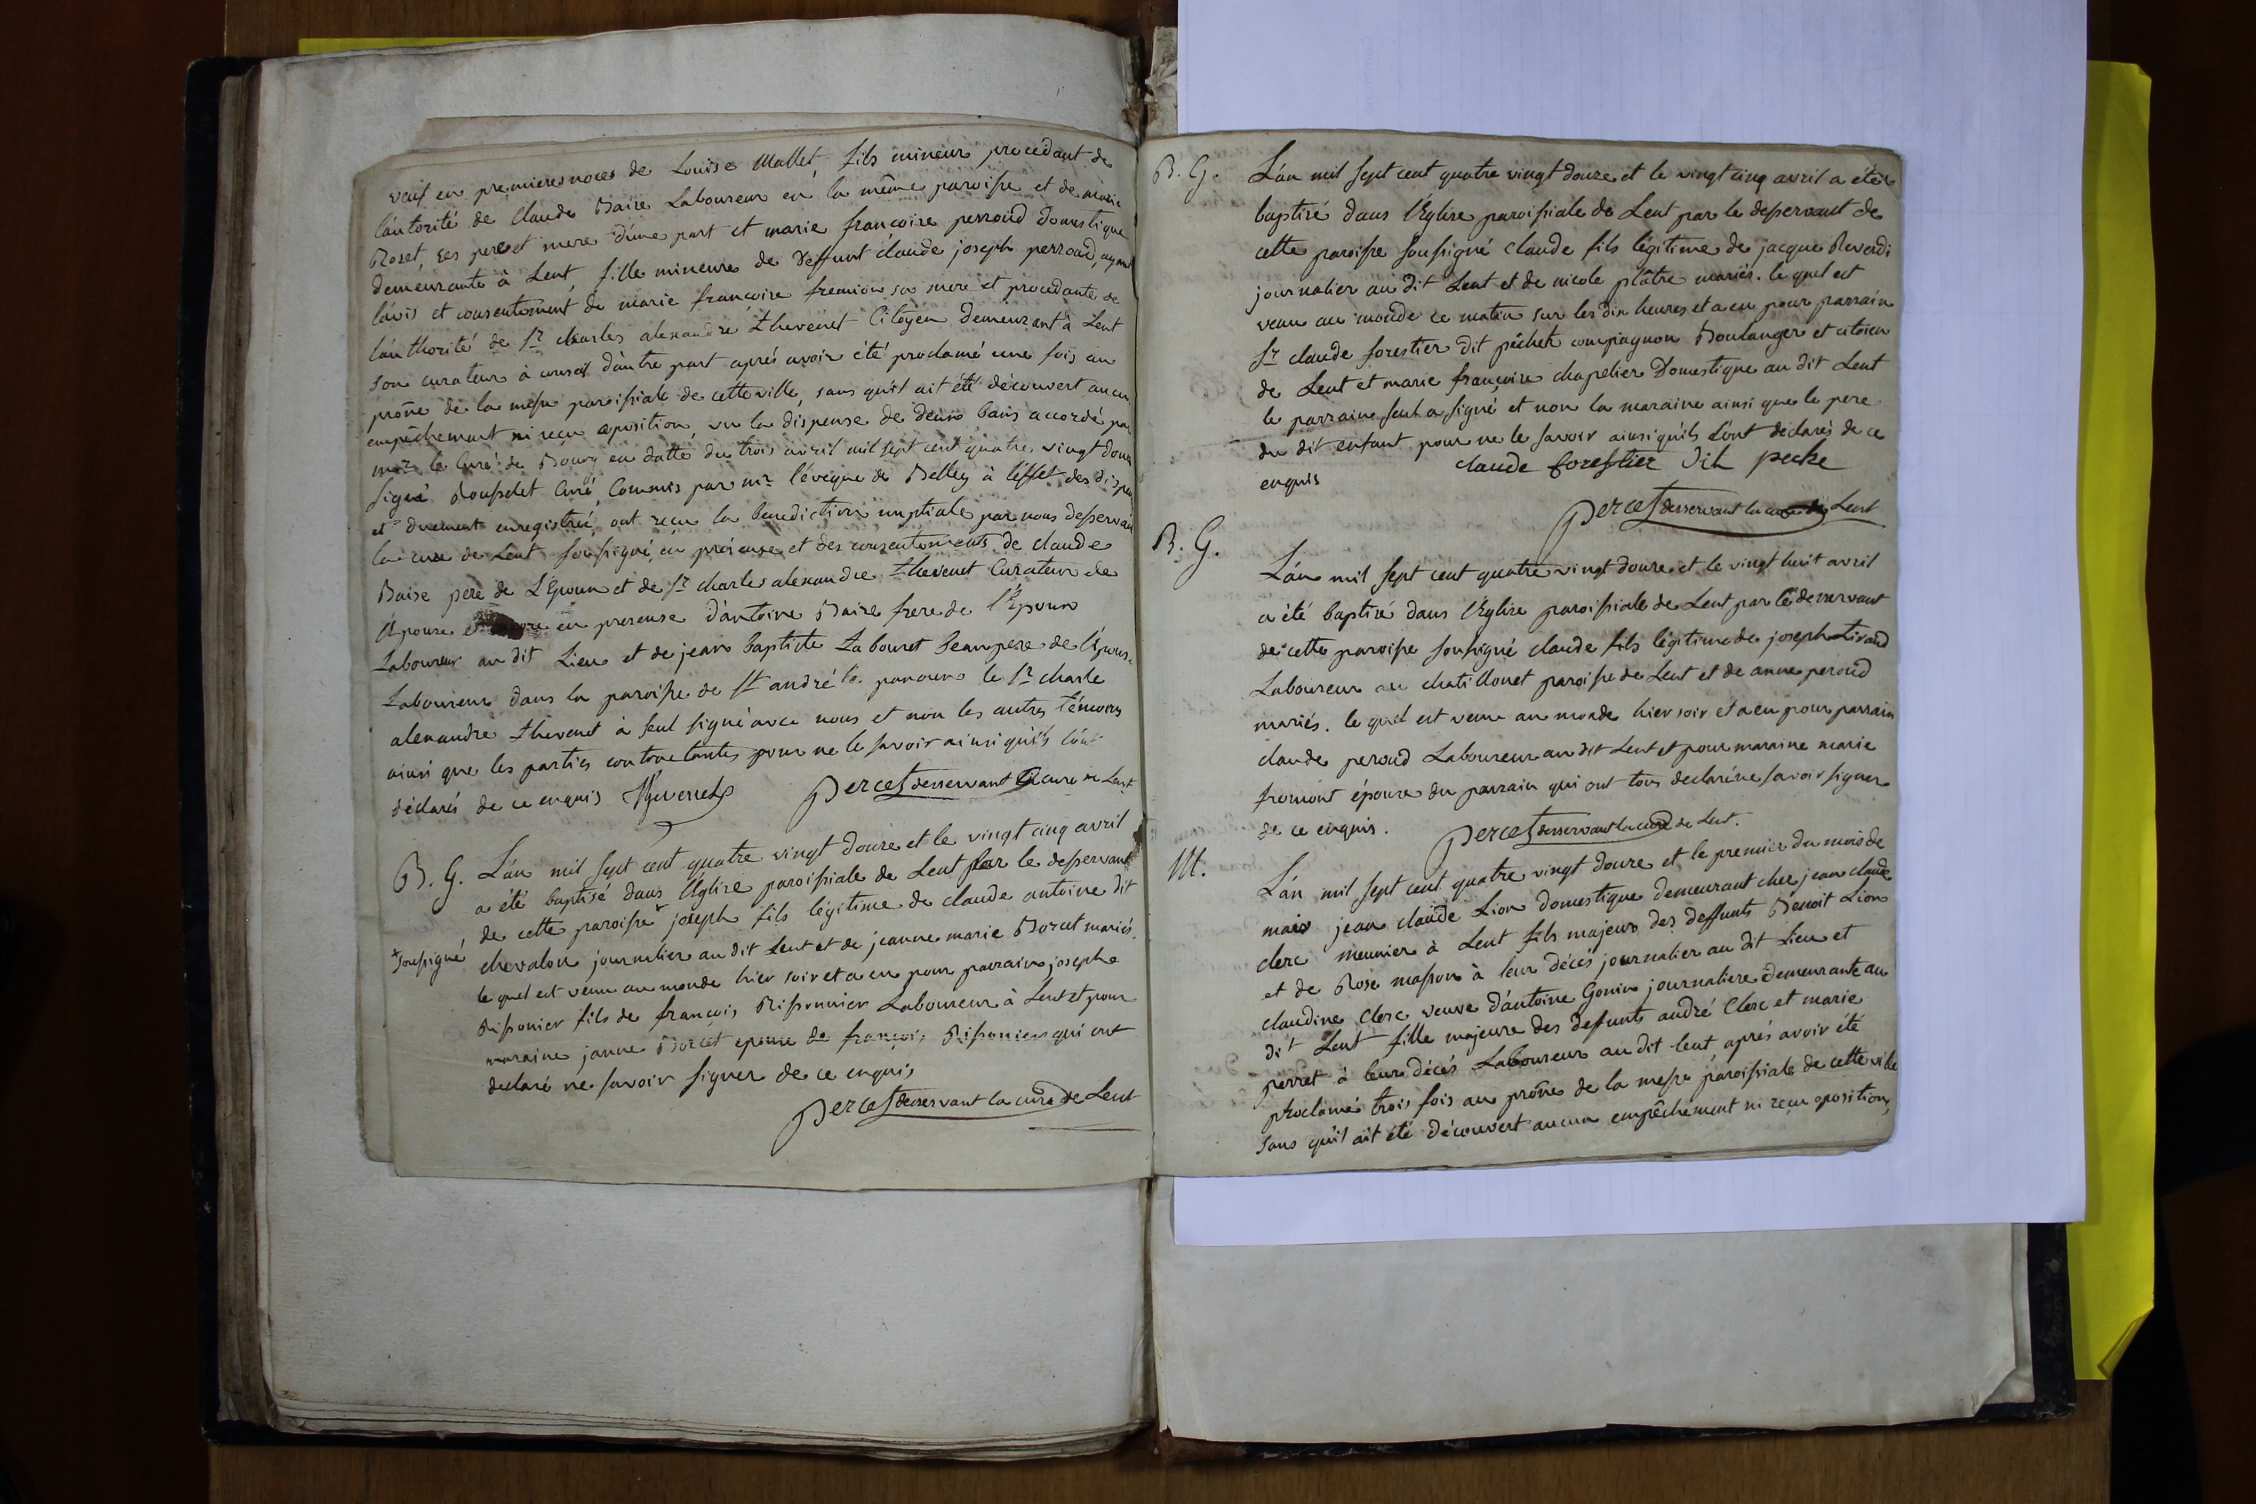 veuf en premieres noces de Louise Mallet, fils mineur procedant de
l'autorité de Claude Baise Laboureur en la même paroisse et de marie
Rozet, ses pere et mere d'une part et marie françoise perroud domestique
demeurante à Lent, fille mineure de deffunt claude joseph perroud, ayant
l'avis et consentement de marie françoise fremion sa mere et procedante de
l'authorité de Sr charles alexandre thevenet Citoyen demeurant à Lent
son curateur à conseil d'autre part aprés avoir été proclamé une fois au
prône de la messe paroissiale de cette ville, sans qu'il ait été découvert aucun
empêchement ni reçu oposition, vu la dispense de deux bans accordé par
mr le Curé de Bourg en datte du trois avril mil sept cent quatre vingt douze
signé Rousselet Curé, Commis par mr l'évêque de Belley à l'effet des dispen
et duement enregistrée, ont reçu la benediction nuptiale par nous desservant
la cure de Lent soussigné, en présence et des consentements de claude
Baise pere de L'Epoux et de Sr charles alexandre thevenet Curateur de
l'Epouse en presence d'antoine Baise frere de l'Epoux
Laboureur au dit Lieu et de jean baptiste Labouret beaupere de l'Epouse
Laboureur dans la paroisse de St andré le panoux le Sr charle
alexandre thevenet à seul signé avec nous et non les autres témoins
ainsi que les parties contractantes pour ne le savoir ainsi qu'ils l'ont
déclarés de ce enquis Thevenet percet desservant la cure de Lent
B. G. L'an mil sept cent quatre vingt douze et le vingt cinq avril
a été baptisé dans l'Eglise paroissiale de Lent par le desservant
de cette paroisse* joseph fils légitime de claude antoine dit
*soussigné chevalon journalier au dit Lent et de jeanne marie Borcet mariés.
le quel est venu au monde hier soir et a eu pour parrain joseph
Rissonier fils de françois Rissonnier Laboureur à Lent et pour
maraine janne Borcet epouse de françois Rissonier qui ont
declaré ne savoir signer de ce enquis
percet desservant la cure de Lent
B. G. L'an mil sept cent quatre vingt douze et le vingt cinq avril a été
baptisé dans l'Eglise paroissiale de Lent par le desservant de
cette paroisse soussigné claude fils légitime de jacque Reverdi
journalier au dit Lent et de nicole plâtre mariés. le quel est
venu au monde ce matin sur les dix heures et a eu pour parrain
Sr claude forestier dit pêcheh compagnon Boulanger et citoien
de Lent et marie françoise chapelier Domestique au dit Lent
le parrain seul a signé et non la maraine ainsi que le pere
du dit enfant pour ne le savoir ainsi qu'ils l'ont déclarés de ce
enquis claude forestier dih peche
percet desservant la cure de Lent
B. G. L'an mil sept cent quatre vingt douze et le vingt huit avril
a été baptisé dans l'Eglise paroissiale de Lent par le desservant
de cette paroisse soussigné claude fils légitime de joseph Tiraud
Laboureur au chatillonet paroisse de Lent et de anne peroud
mariés. le quel est venu au monde hier soir et a eu pour parrain
claude peroud Laboureur au dit Lent et pour maraine marie
fromont épouse du parrain qui ont tous declaré ne savoir signer
de ce enquis. percet desservant la cure de Lent.
M. L'an mil sept cent quatre vingt douze et le premier du mois de
mais jean claude Lion domestique demeurant chez jean claude
clerc meunier à Lent fils majeur des deffunts Benoit Lion
et de Rose masson à leur décés journalier au dit Lieu et
claudine Clerc veuve d'antoine Gonin journaliere demeurante au
dit Lent fille majeure des deffunts andré Clerc et marie
perret à leur décés Laboureur au dit lent, aprés avoir été
proclamé trois fois au prône de la messe paroissiale de cette ville
sans qu'il ait été découvert aucun empêchement ni reçu oposition,